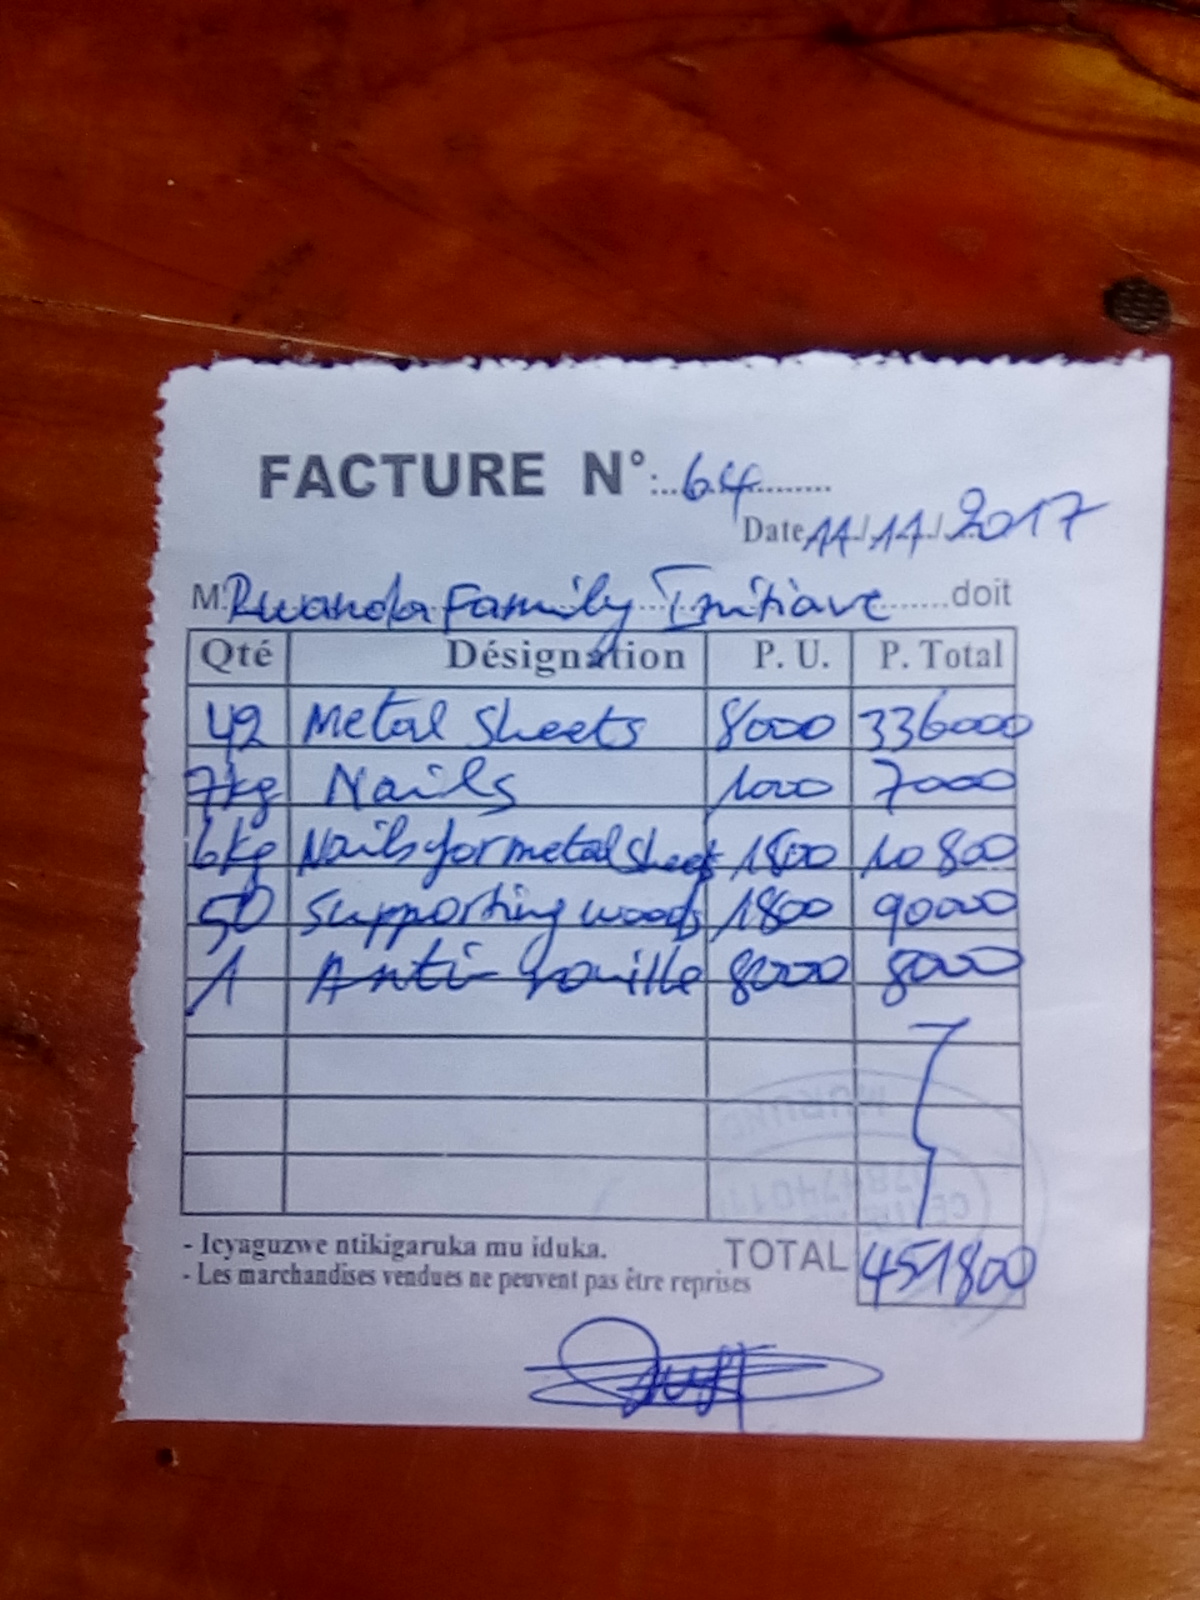 FACTURE N°: 64
Date 11/11/2017
M: Rwanda Family Initiave doit
Qté Désignation P. U. P. Total
42 Metal Sheets 8000 336000
7kg Nails 1000 7000
6kg Nails for metal sheets 1800 10800
50 Supporting woods 1800 90000
1 Anti-rouille 8000 8000
- Icyaguzwe ntikigaruka mu iduka. TOTAL 451800
- Les marchandises vendues ne peuvent pas être reprises